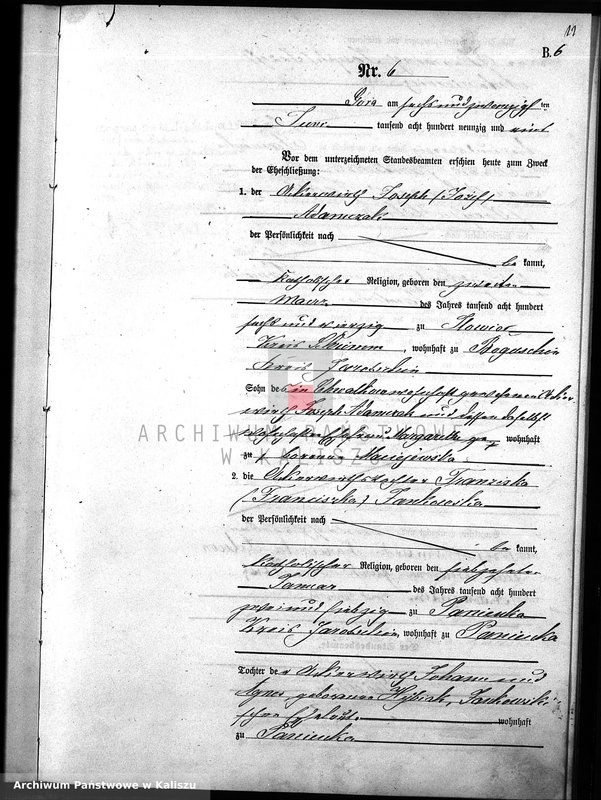 11
B. 6
Nr. 6
Góra am sechsundzwanzigsten
Juni tausend acht hundert neunzig und vier
Vor dem unterzeichneten Standesbeamten erschien heute zum Zweck
der Eheschließung:
1. der Ackerwirth Joseph (Józef)
Adamczak
der Persönlichkeit nach
be kannt,
katholischer Religion, geboren den zweiten
Maerz des Jahres tausend acht hundert
sechs und vierzig zu
Kreis, wohnhaft zu Boguschin
Kreis Jarotschin
Sohn des in
wirth Joseph Adamczak und dessen daselbst
Ehefrau Margaretha ge wohnhaft
zu borenen Maciejewska
2. die Ackerwirthstochter Franziska
(Franciszka) Jankowska
der Persönlichkeit nach
be kannt,
katholischer Religion, geboren den siebzehnten
Januar des Jahres tausend acht hundert
zwei und siebzig zu Panienka
Kreis Jarotschin, wohnhaft zu Panienka
Tochter der Ackerwirth Johann und
Agnes geborenen Jankowski
schen Eheleute wohnhaft
zu Panienka
ARCHIWUM PAŃSTWOWE
W KALISZU
Archiwum Państwowe w Kaliszu